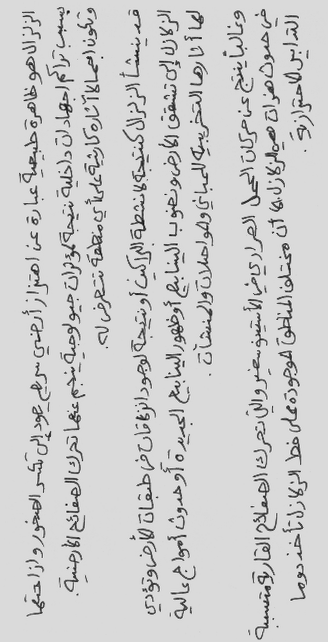 الزلزال هو ظاهرة طبيعية عبارة عن اهتزاز أرضي سريع يعود إلى تكسر الصخور وإزاحتها
بسبب تراكم إجهادات داخلية نتيجة لمؤثرات جيولوجية ينجم عنها تحرك الصفائح الأرضية.
وتكون أحيانا آثاره كارثية على أي منطقة تتعرض له.
قد ينشأ الزلزال كنتيجة لأنشطة البراكين أو نتيجة لوجود انزلاقات في طبقات الأرض وتؤدي
الزلازل إلى تشقق الأرض ونضوب الينابيع أو ظهور الينابيع الجديدة أو حدوث أمواج عالية
لها آثارها التخريبية للمباني والمواصلات والمنشآت.
وغالبا ينتج عن حركات الحمل الحراري في الأسثينوسفير والتي تحرك الصفائح القارية متسببة
في حدوث هزات هي الزلازل. كما أن مختلف المناطق الموجودة على خط الزلازل تأخذ دوما
التدابير الاحترازية.